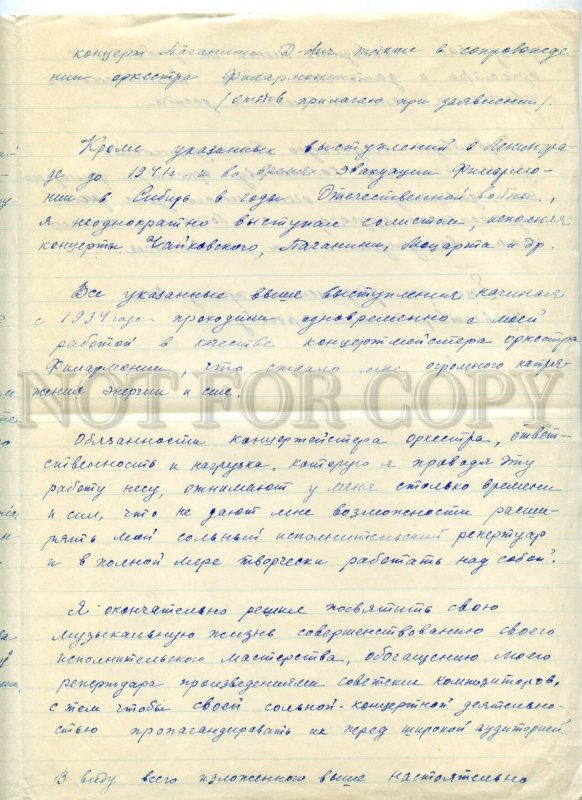 концерт Паганини D-dur также в сопровожде
нии оркестра Филармонии
/отзыв прилагаю при заявлении/.
Кроме указанных выступлений в Ленингра
де до 1941г. и во время эвакуации Филармо-
нии в Сибирь в годы Отечественной войны,
я неоднократно выступал солистом, исполняя
концерты Чайковского, Паганини, Моцарта и др.
Все указанные выше выступления начиная
с 1934 года проходили одновременно с моей
работой в качестве концертмейстера оркестра
Филармонии, что стоило мне огромного напря-
жения энергии и сил.
NOT FOR COPY
Обязанности концермейстера оркестра, ответ-
ственность и нагрузка, которую я проводя эту
работу несу, отнимают у меня столько времени
и сил, что не дают мне возможности расши-
рять мой сольный исполнительский репертуар
и в полной мере творчески работать над собой.
Я окончательно решил посвятить свою
музыкальную жизнь совершенствованию своего
исполнительского мастерства, обогащению моего
репертуара произведениями советских композиторов,
с тем чтобы своей сольной-концертной деятельно-
стью пропагандировать их перед широкой аудиторией.
В виду всего изложенного выше настоятельно